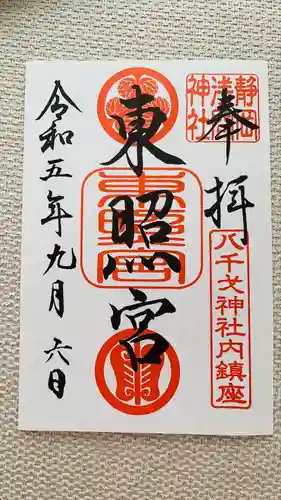 奉拝
静岡
浅間
神社
八千戈神社内鎮座
東照宮
東照宮
令和五年九月六日